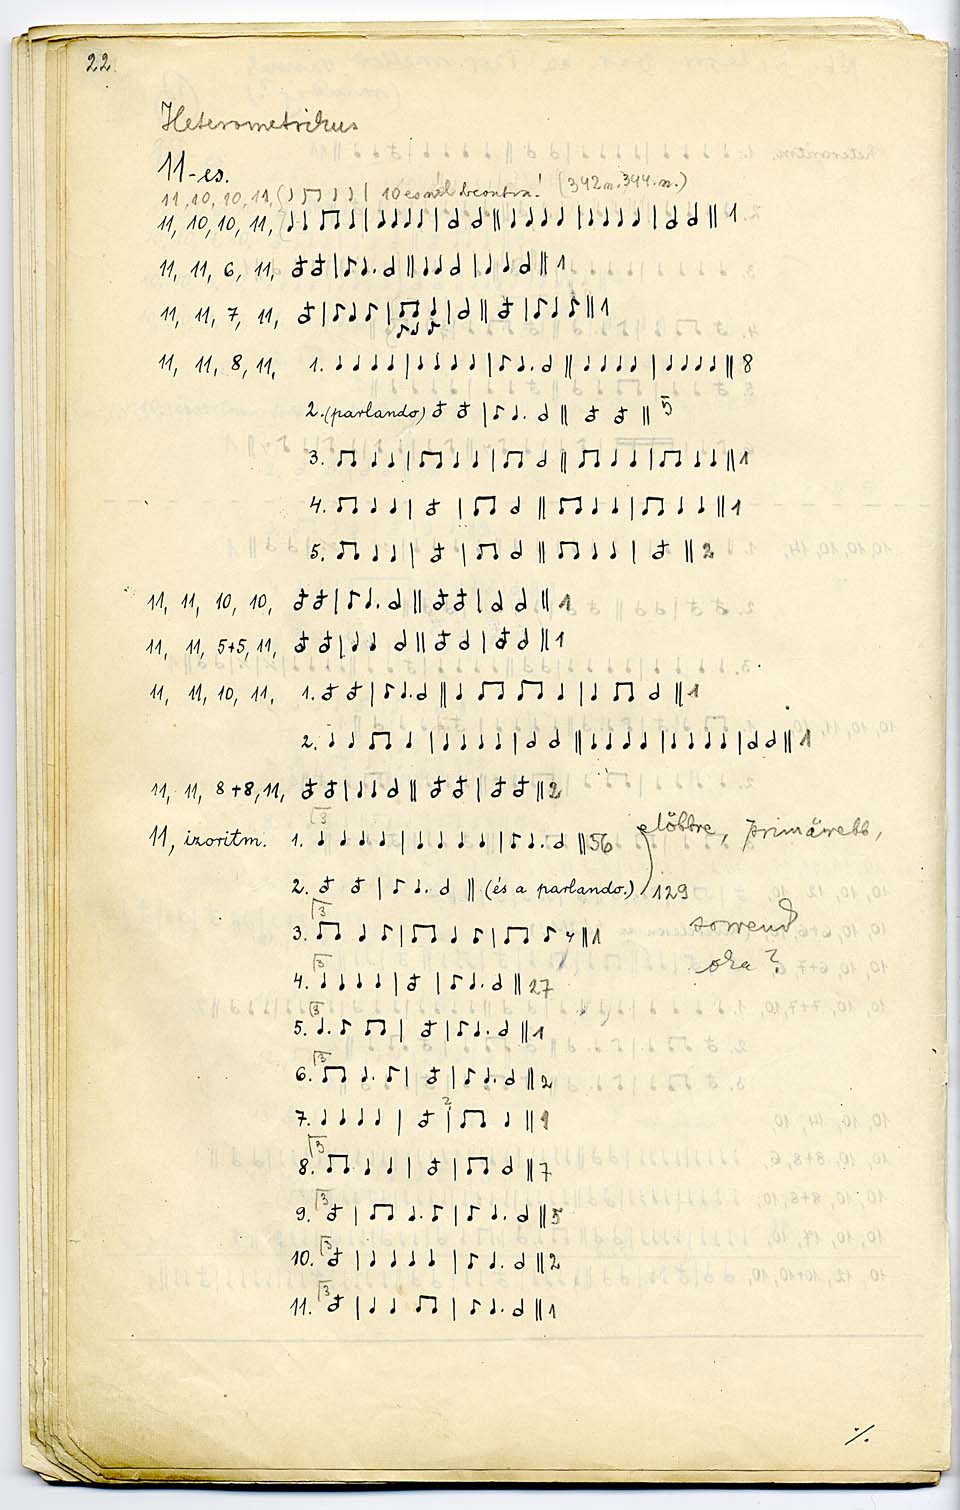 22.
Heterometrikus
11-es.
11, 10, 10, 11, 10 esnél (342 n. 344. n.)
11, 10, 10, 11, 1
11, 11, 6, 11, 1
11, 11, 7, 11, 1
11, 11, 8, 11, 1. 8
2. (parlando) 5
3. 1
4. 1
5. 2
11, 11, 10, 10, 1
11, 11, 5+5, 11, 1
11, 11, 10, 11, 1. 1
2. 1
11, 11, 8+8, 11, 2
11, izoritm. 1. 3 56 előbbre, primärebb,
2. (és a parlando.) 129
3. 3 1 sorrend
4. 3 27 oka?
5. 3 1
6. 3 2
7. ?
8. 3 7
9. 3 5
10. 3 2
11. 3 1
·/.